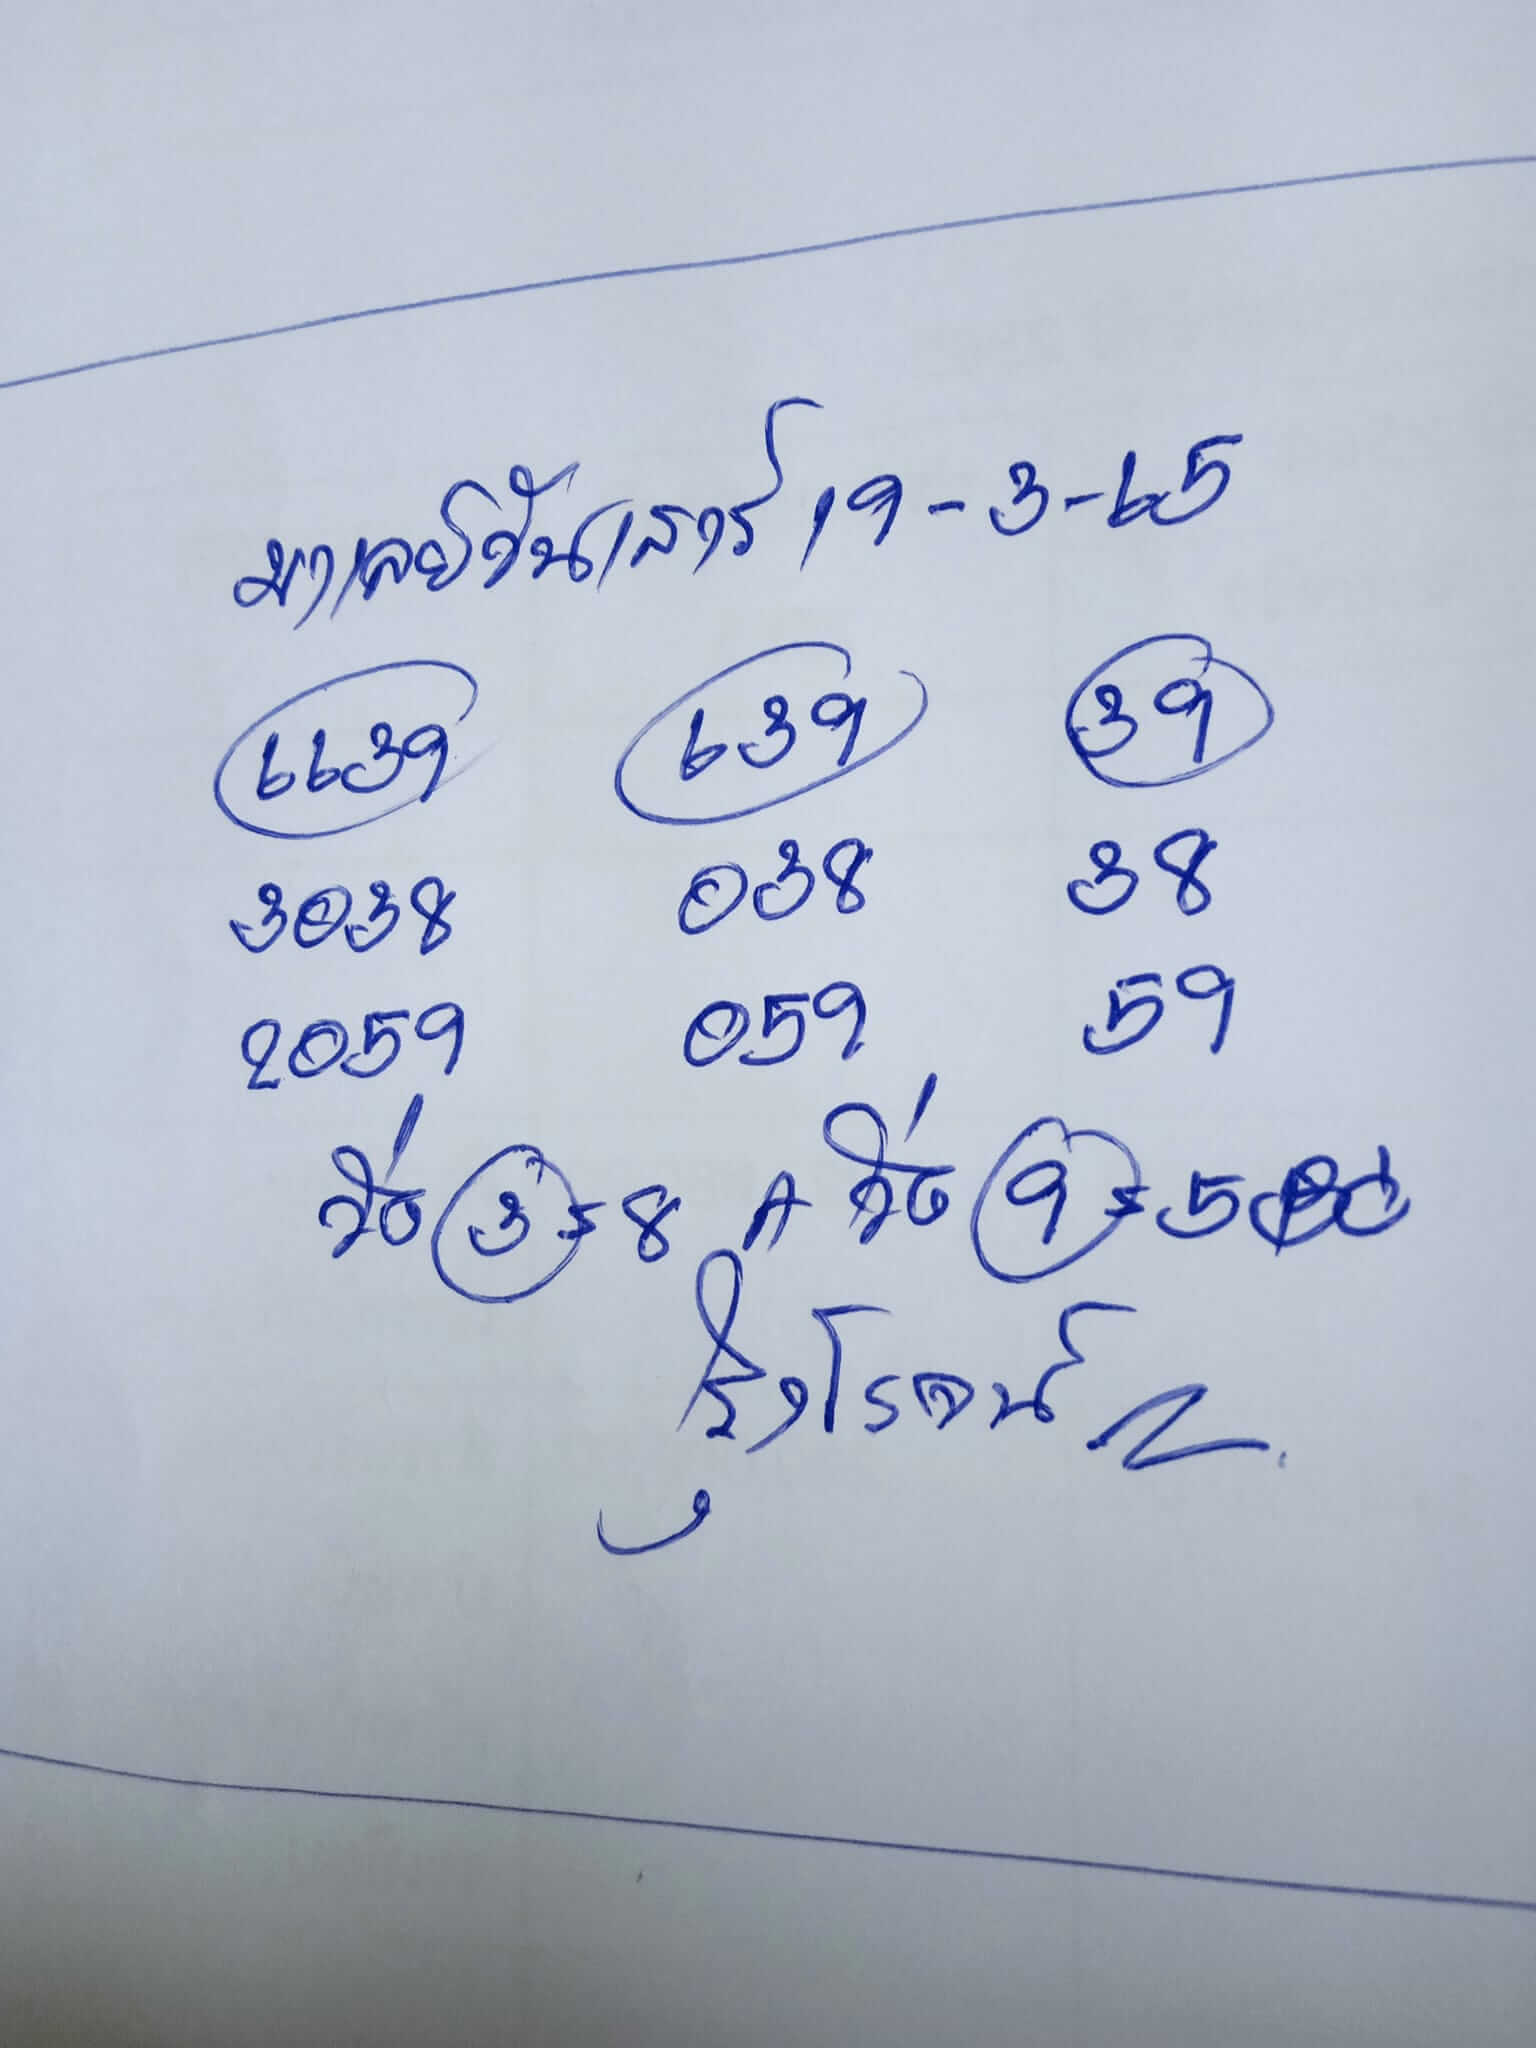 มาเลย์วันเสาร์ 19-3-65
6639 639 39
3038 038 38
2059 059 59
วิ่ง 3 8 วิ่ง 9 5